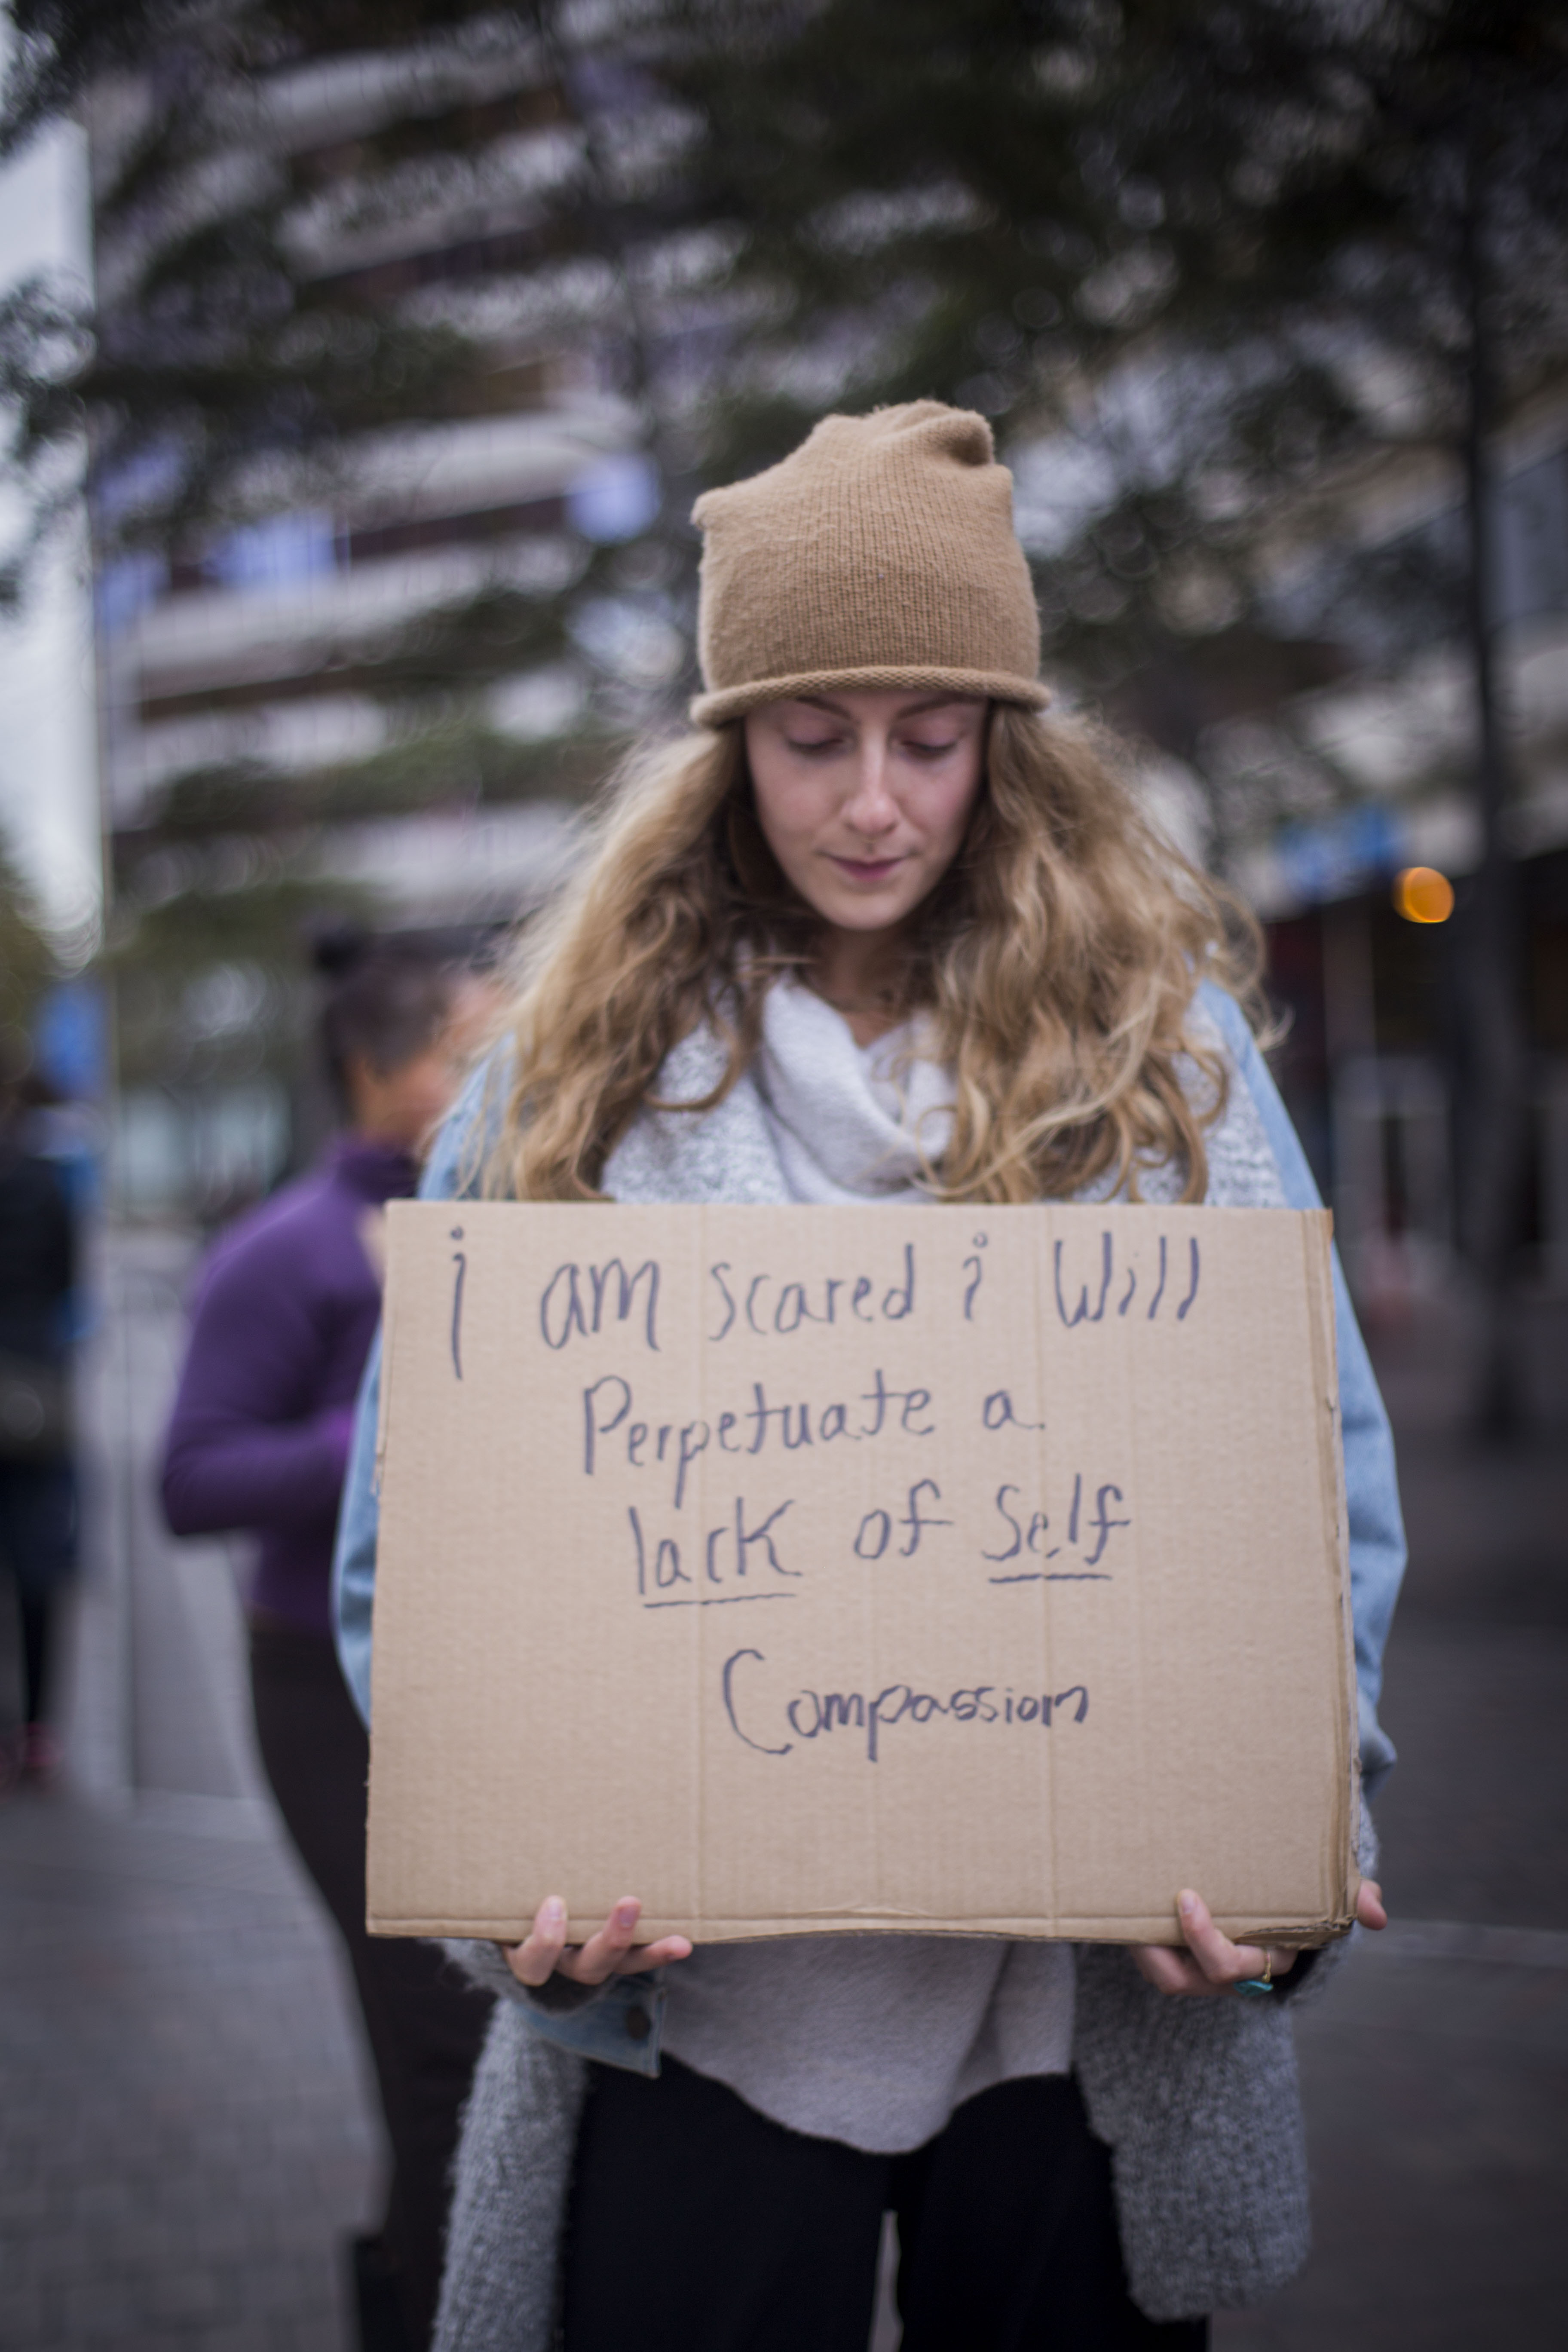 i am scared i Will
Perpetuate a
lack of Self
Compassion